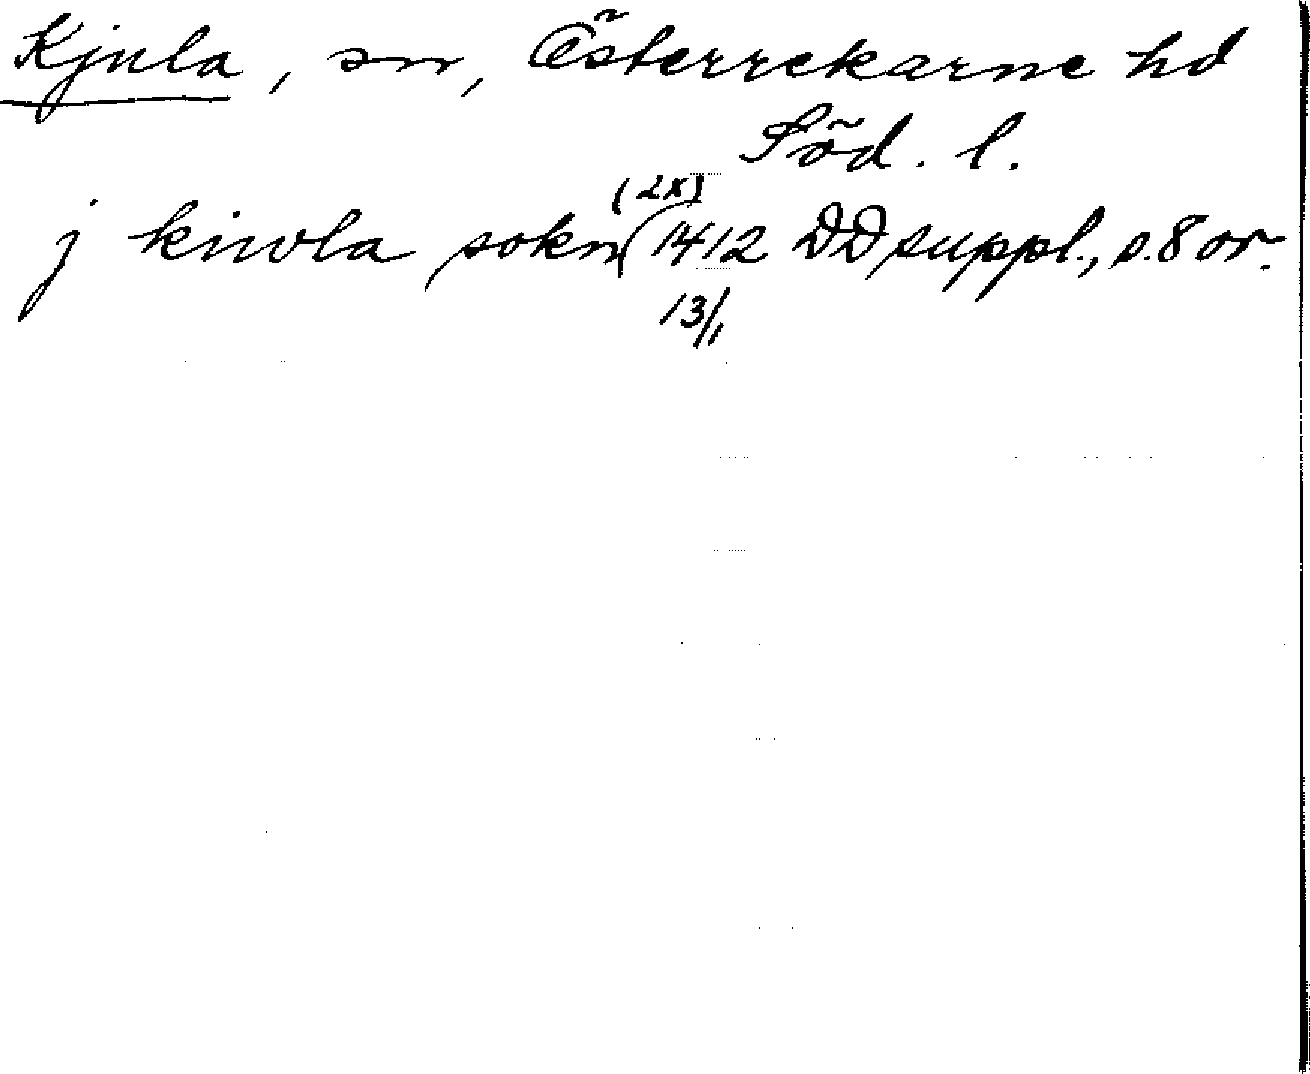 Kjula, sn, Österrekarne hd
Söd. l.
(2x)
j kiwla sokn 1412 DD suppl., s. 8 or.
13/1